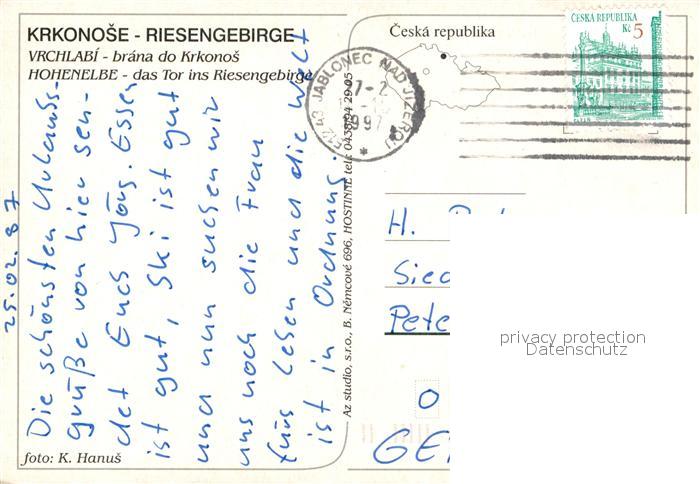 KRKONOŠE - RIESENGEBIRGE
VRCHLABÍ - brána do Krkonoš
HOHENELBE - das Tor ins Riesengebirge
25.02.87
Die schönsten Urlaubs-
grüße von hier sen-
det Euch Jörg. Essen
ist gut, Ski ist gut
und nun suchen wir
uns noch die Frau
fürs Leben und die Welt
ist in Ordnung.
foto: K. Hanuš
Az studio, s.r.o., B. Němcové 696, HOSTINNÉ tel.: 0438/94 29 05
Česká republika
512 43 JABLONEC NAD JIZEROU
1997
ČESKÁ REPUBLIKA
Kč 5
H.
Sied
Pete
O
GE
privacy protection
Datenschutz